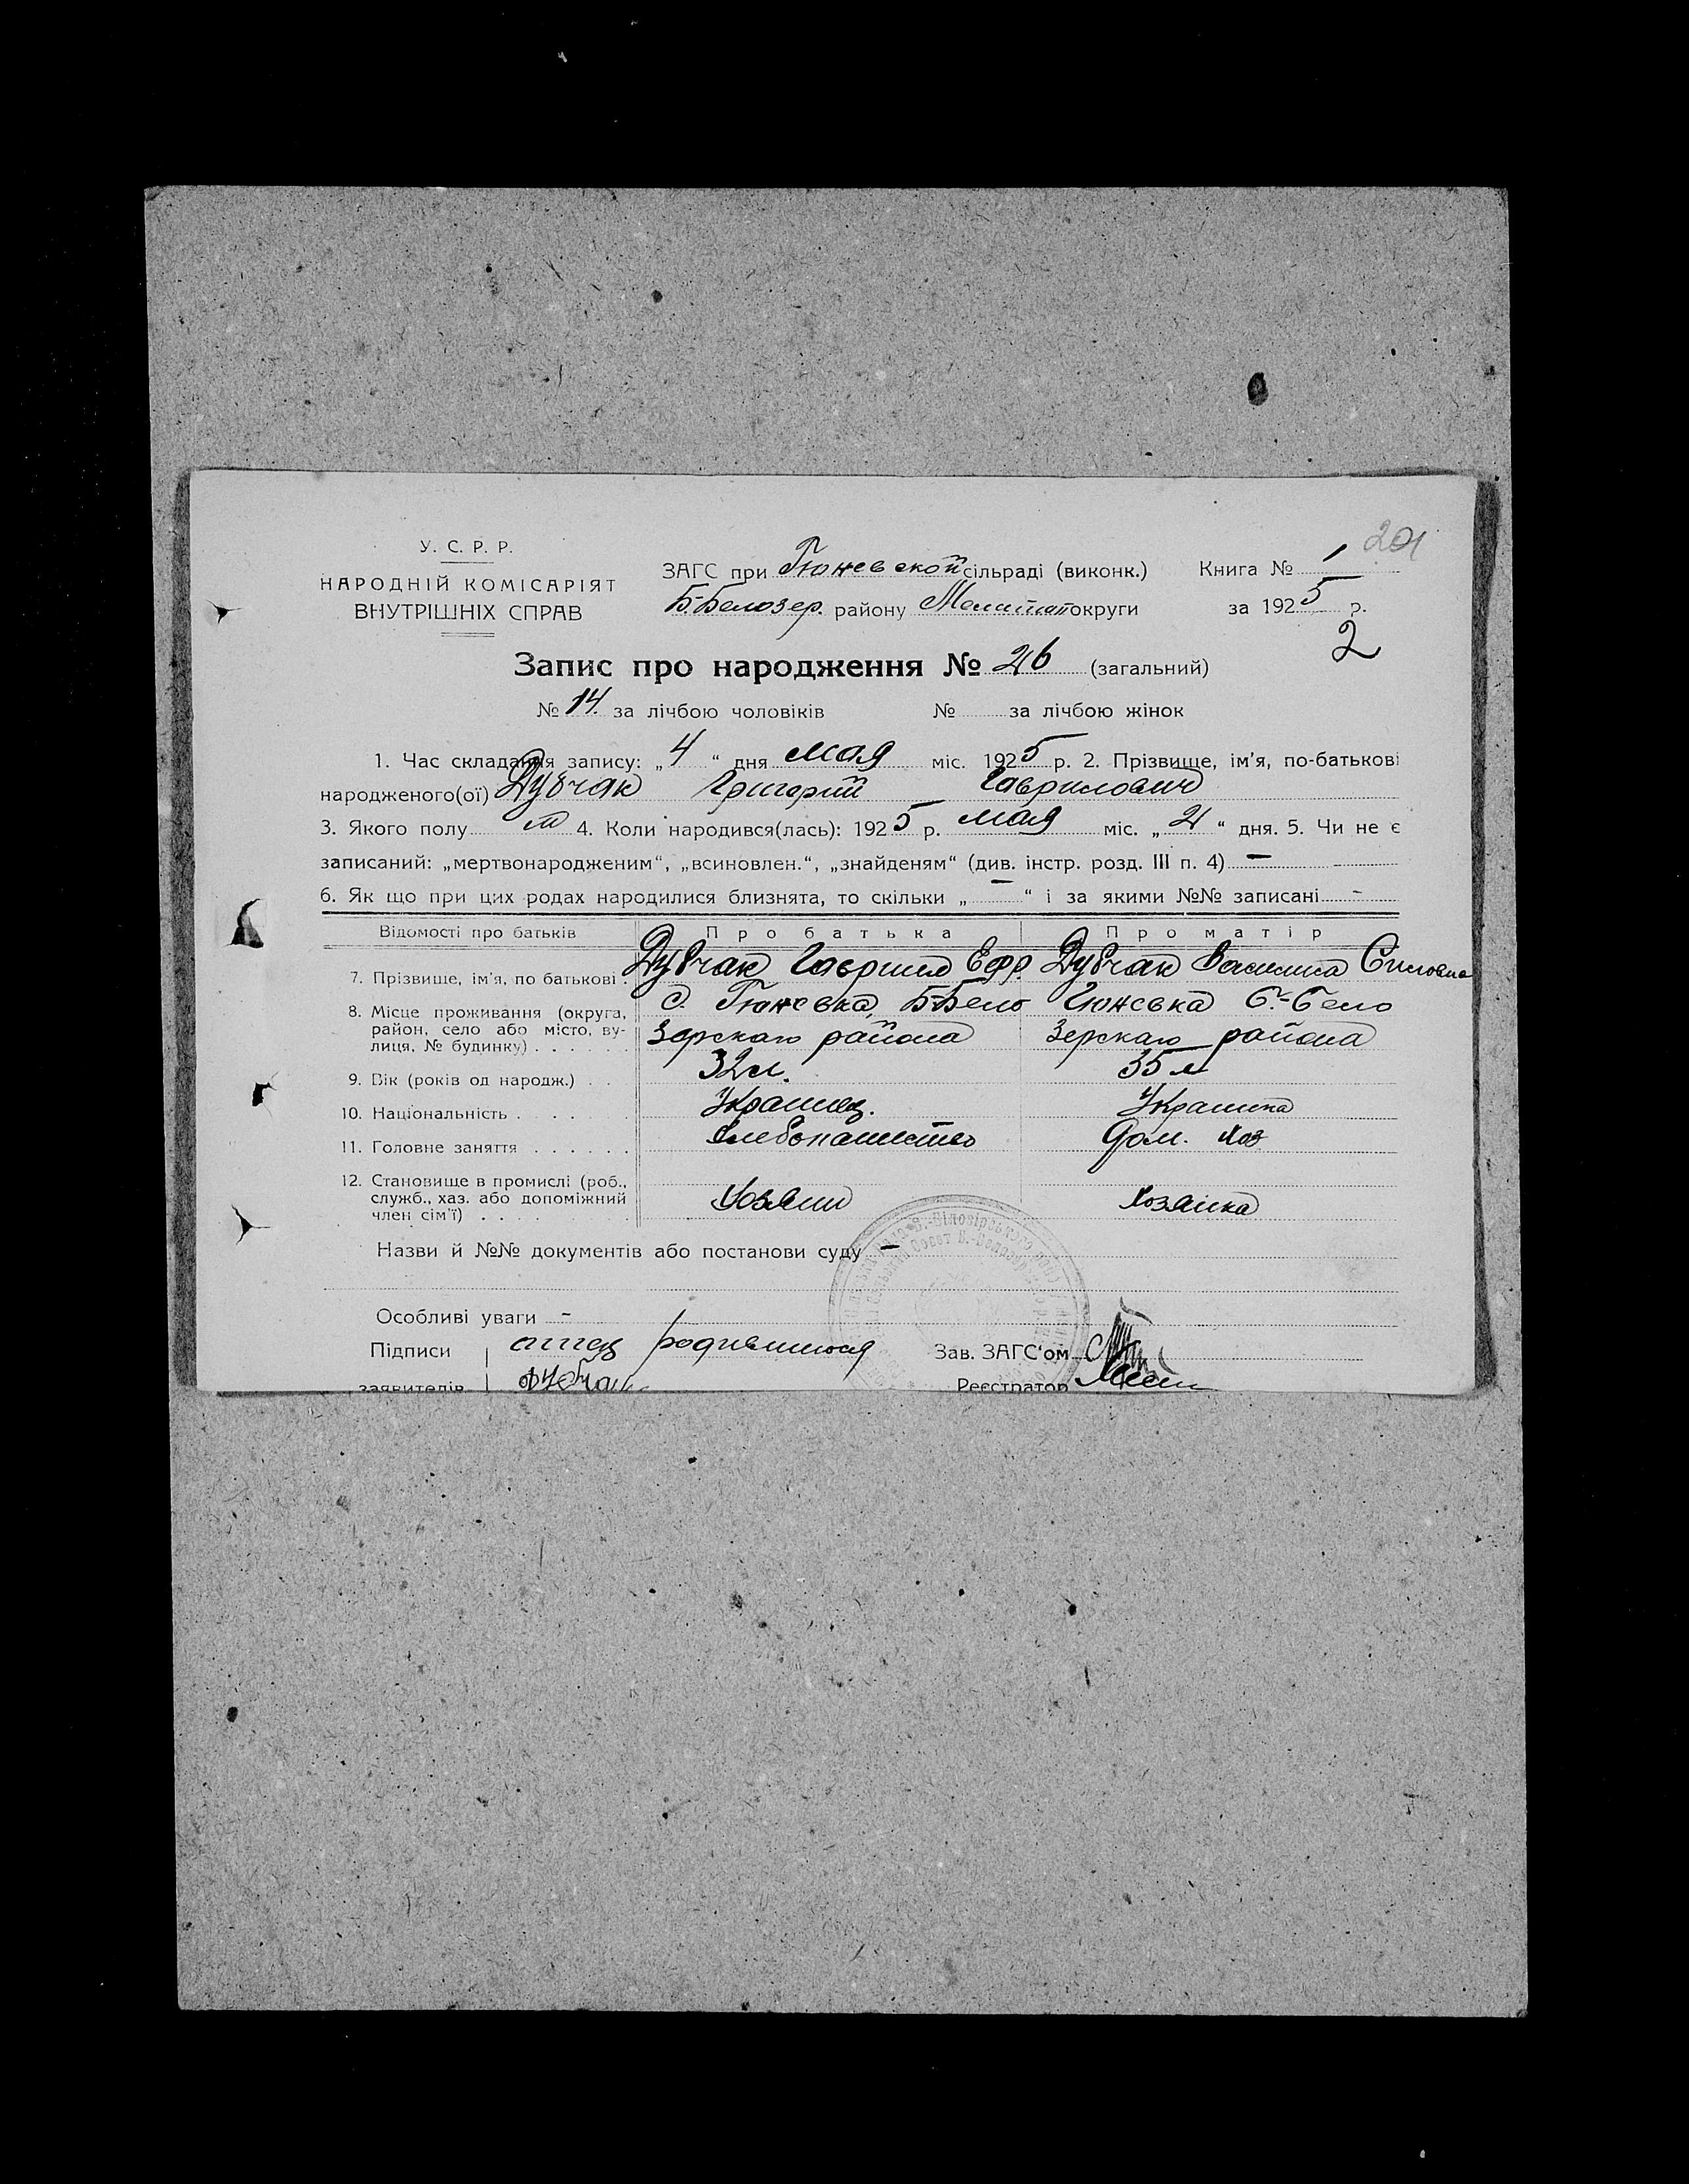 201
У. С. Р. Р.
НАРОДНІЙ КОМІСАРІЯТ
ВНУТРІШНІХ СПРАВ
ЗАГС при Гюневской сільраді (виконк.) Книга № 1
Б-Белозер. району Мелитоп округи за 1925 р.
2
Запис про народження № 26 (загальний)
№ 14. за лічбою чоловіків № за лічбою жінок
1. Час складання запису: „4“ дня мая міс. 1925 р. 2. Прізвище, ім'я, по-батькові
народженого(ої) Дубчак Григорий Гаврилович
3. Якого полу м 4. Коли народився(лась): 1925 р. мая міс. „2“ дня. 5. Чи не є
записаний: „мертвонародженим“, „всиновлен.“, „знайденям“ (див. інстр. розд. III п. 4) —
6. Як що при цих родах народилися близнята, то скільки „—“ і за якими №№ записані -
Відомості про батьків Про батька Про матір
7. Прізвище, ім'я, по батькові. Дубчак Гаврило Ефр. Дубчак Василиса
8. Місце проживання (округа, д. Гюневка, Б-Бело Гюневка Б.-Бело
район, село або місто, ву- зерскаго района зерскаго района
лиця, № будинку) . . . . . .
9. Вік (років од народж.) . . 32 л. 35 л
10. Національність . . . . Украинец. Украинка
11. Головне заняття . . . . . . Хлебопашество Дом. хоз
12. Становище в промислі (роб.,
служб., хаз. або допоміжний Хозяин Хозяйка
член сім'ї) . . . .
Назви й №№ документів або постанови суду —
Особливі уваги -
Підписи отец родившиюся Зав. ЗАГС'ом
заявителів Реєстратор